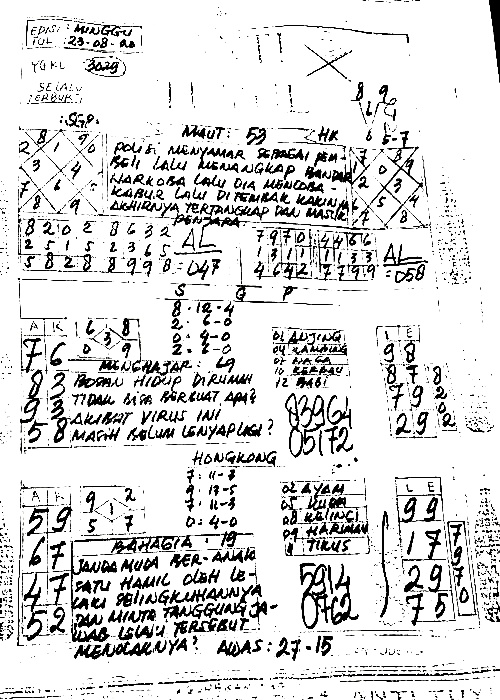 EDISI: MINGGU
TGL: 23-08-20
YGKL 3029
SELALU
TERBUKTI
8 9
6 5-7
:SGP:
MAUT: 53 HK
POLISI MENYAMAR SEBAGAI PEM-
BELI LALU MENANGKAP BANDAR
NARKOBA LALU DIA MENCOBA-
KABUR LALU DITEMBAK KAKINYA
AKHIRNYA TERTANGKAP DAN MASUK
PENJARA
8 2 0 2 8 6 3 2
2 5 1 5 2 3 6 5
5 8 2 8 8 9 9 8
AL
=047
7970 4466
1311 1133
4642 7799
AL
=058
S G P
8-12-4
2-6-0
0-4-0
2-6-0
A K
76
82
93
58
6 3 8
0 3 9
MENGHAJAR: 69
BOSAN HIDUP DIRUMAH
TIDAK BISA BERBUAT APA?
AKIBAT VIRUS INI
MASIH BELUM LENYAP LAGI?
01 ANJING
04 KAMBING
07 NAGA
10 KERBAU
12 BABI
83964
05172
L E
98
878
792
292
HONGKONG
7-11-3
9-13-5
7-11-3
0-4-0
A K
59
67
47
52
9 2
1
5 7
BAHAGIA: 19
JANDA MUDA BER-ANAK
SATU HAMIL OLEH LE-
LAKI SELINGKUHANNYA
DAN MINTA TANGGUNG JA-
WAB LELAKI TERSEBUT
MENOLAKNYA? AWAS: 27-15
02 AYAM
05 KUDA
08 KELINCI
09 HARIMAU
11 TIKUS
5914
0762
L E
99
17
29
75
7970